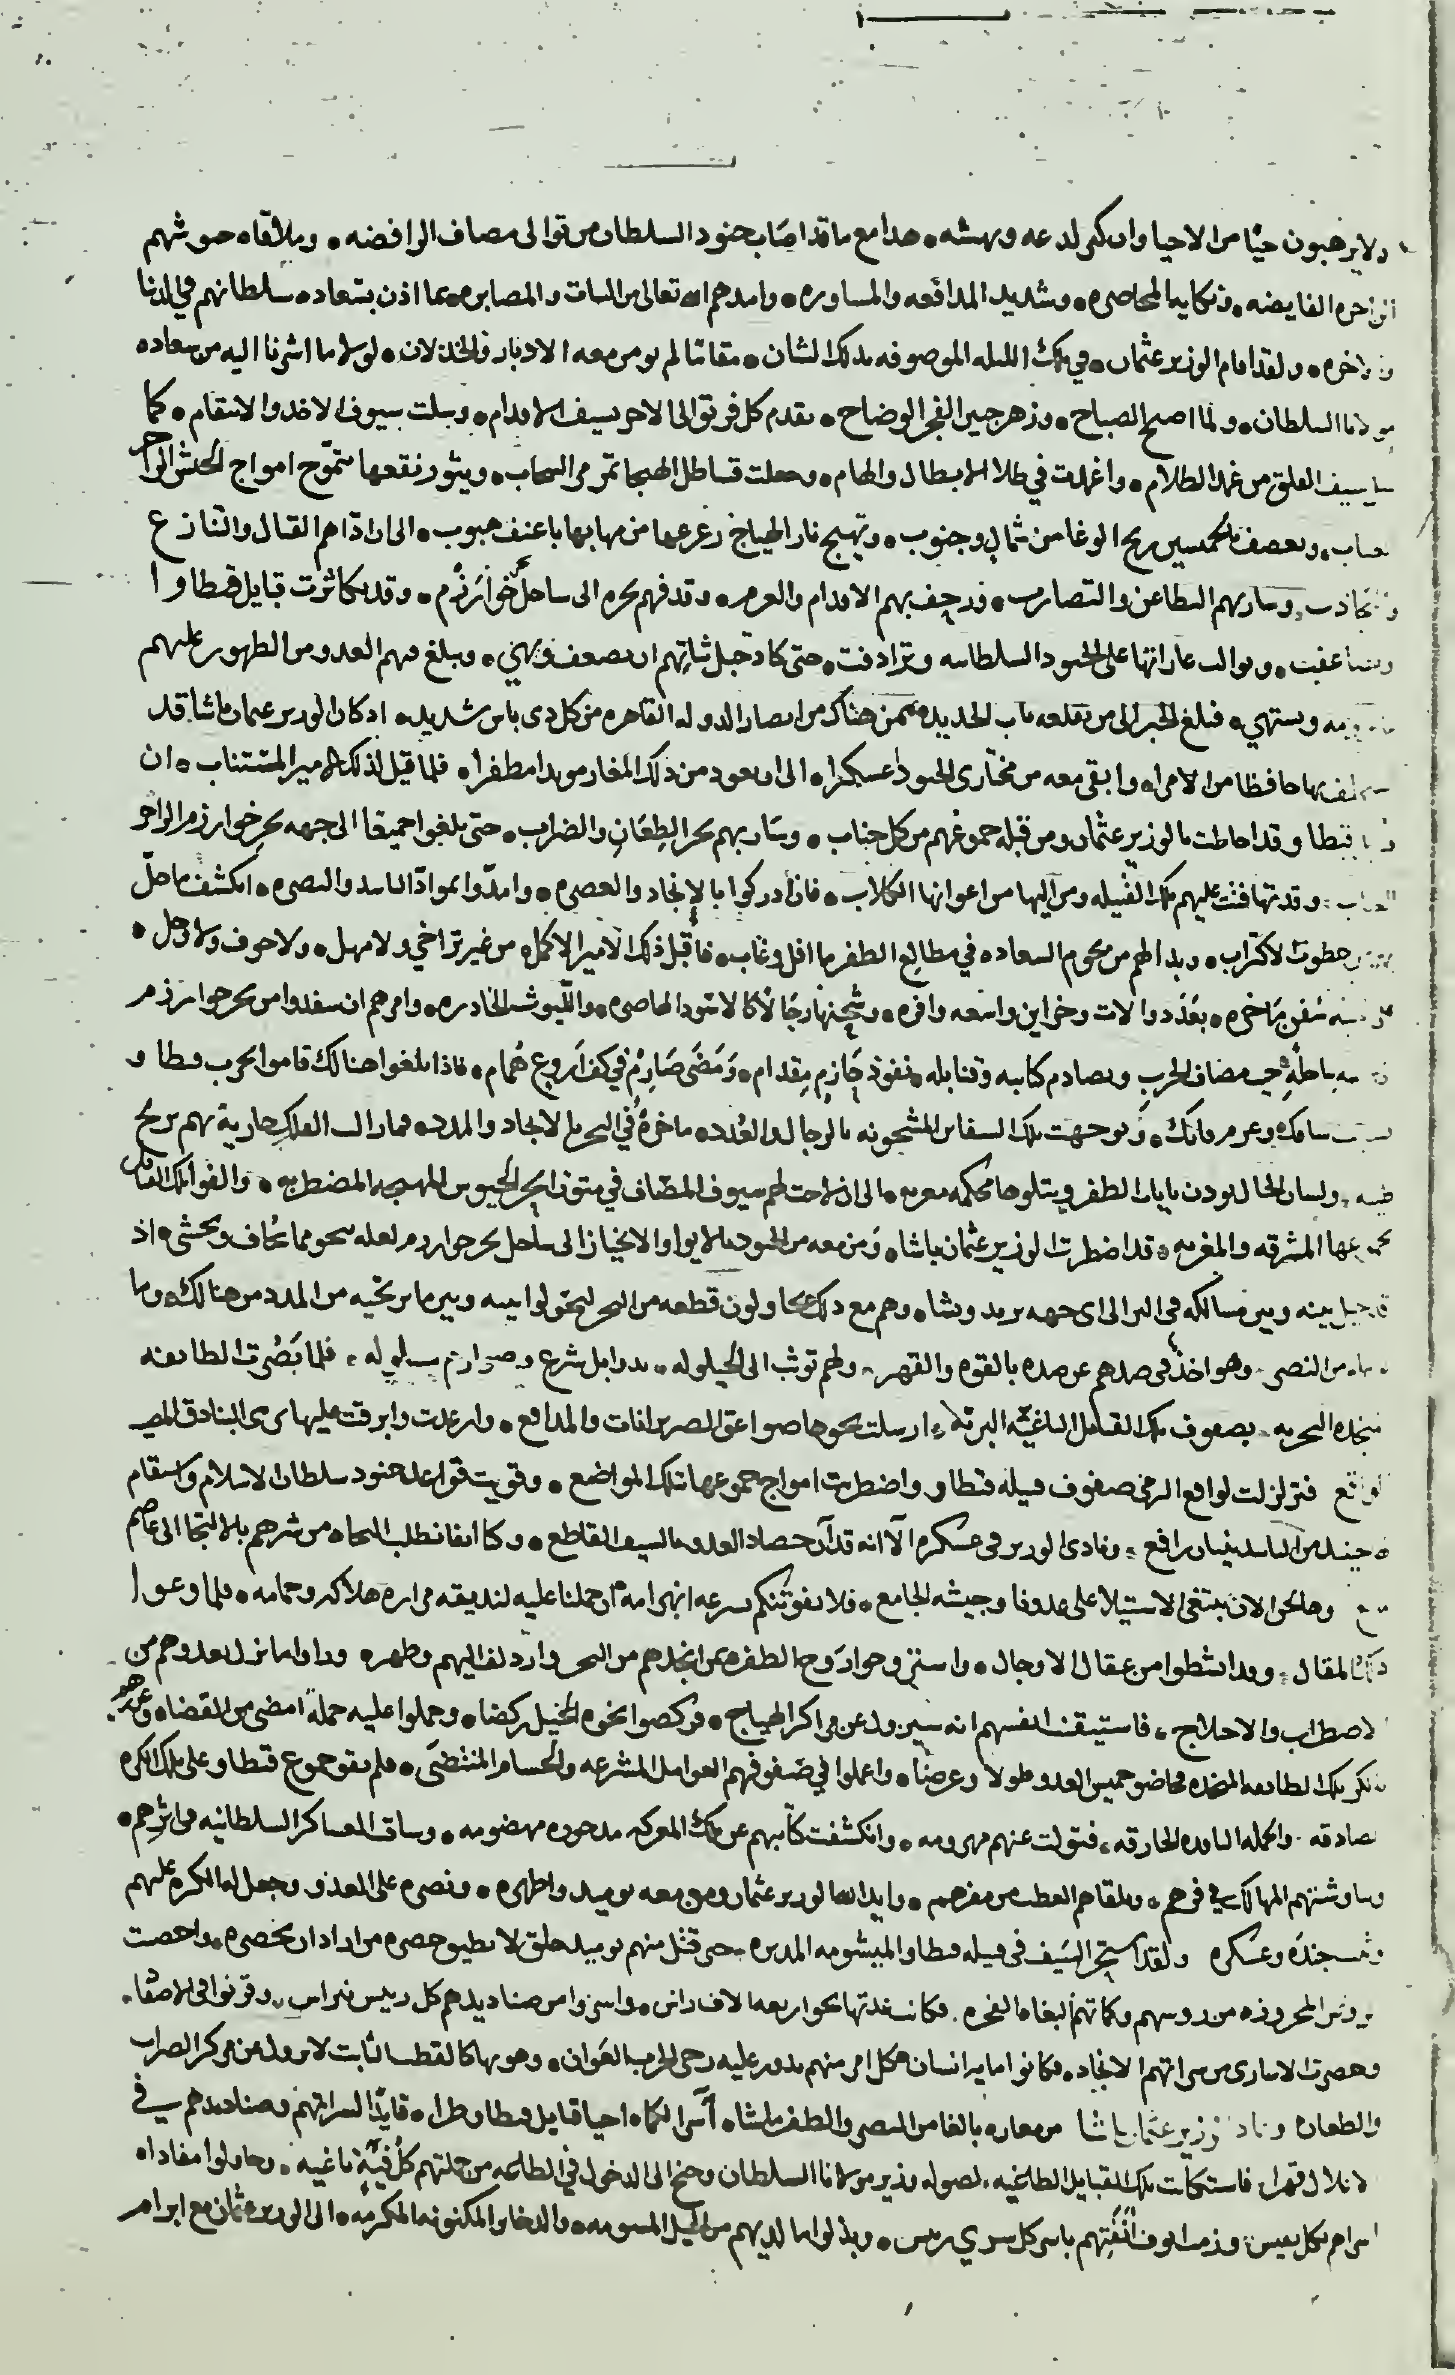 ولا يرهبون حيًا من الاحيا وان كبر لدعه ونهشه، هذا مع ما قد اصاب جنود السلطان من توالى مصاف الرافضه، وملاقاه جيوشهم
الزاخره الفايضه، ونكايه المحاصره، وشديد المدافعه والمساوره، وامدهم الله تعالى من الثبات والمصابره، بما اذن بسعاده سلطانهم في الدنيا
والاخره، ولقد اقام الوزير عثمان، في تلك الليله الموصوفه بذلك الشان، مقاتلا لم يومن معه الادبار والخذلان، لولا ما اشرنا اليه من سعاده
مولانا السلطان، ولما اصبح الصباح، وزهر جبين الفجر الوضاح، تقدم كل فريق الى الاخر بسيف الاقدام، وسلت سيوف الاخذ والانتقام، كما
سل سيف الفلق من غمد الظلام، واغمدت في طلا الابطال والهام، وجعلت قساطل الهيجا تمر مر السحاب، ويثور نقعها بتموج امواج الجيش الزاخر
العباب، وتعصف بالخميسين ريح الوغا من شمال وجنوب، وتهيج نار الهياج زعزعها من مهابها باعنف هبوب، الى ان اذاهم القتال والتنازع
والتجاذب، وسار بهم التطاعن والتضارب، فرجف بهم الاقدام والعزم، وقذفهم بحره الى ساحل بحر خوارزم، وقد تكاثرت قبايل قيطاوا
وتضاعفت، وتوالت غاراتها على الجنود السلطانيه وترادفت، حتى كاد جبل ثباتهم ان يضعف ويهي، ويبلغ فيهم العدو من الظهور عليهم
ما يرومه ويشتهي، فبلغ الخبر الى من بقلعه باب الحديد، ممن هناك من انصار الدوله القاهره من كل ذى باس شديد، اذ كان الوزير عثمان باشا قد
استخلف بها حافظا من الامرا، وابقى معه من مختارى الجنود عسكرا، الى ان يعود من ذلك المغار مويدا مظفرا، فلما قيل لذلك الامير المستناب، ان
قيطاو قد احاطت بالوزير عثمان ومن قبله جموعهم من كل جناب، وسار بهم بحر الطعان والضراب، حتى بلغوا جميعا الى جهه بحر خوارزم الزاخر
العباب، وقد تهافتت عليهم تلك القبيله ومن اليها من اعوانها الكلاب، فان ادركوا بالانجاد والعصره، وامدوا بمواد التاييد والنصره، انكشف ما حل
بهم من خطوب الاكتراب، وبدا لهم من نجوم السعاده في مطالع الظفر ما افل وغاب، فاقبل ذلك الامير الاكمل، من غير تراخي ولا مهل، ولا خوف ولا وجل،
على سفن ماخره، بعدد والات وخزاين واسعه وافره، وشحنها رجالا كالاسود الهاصره، والليوث الخادره، وامرهم ان ينفذوا من بحر خوارزم
الى ساحله حيث مصاف الحرب وتصادم كتايبه وقنابله، نفوذ حازم مقدام، ومضي صارم في كف اروع همام، فاذا بلغوا هنالك قاموا بحرب قيطاو
بسيف سافك وعزم فاتك، وتوجهت تلك السفاين المشحونه بالرجال والعدد، ماخرة في البحر بالانجاد والمدد، فما زالت الفلك جارية بهم بريح
طيبه، ولسان الحال يوذن بايات الظفر ويتلوها محكمه معربه، الى ان لاحت لهم سيوف المضاف في متون ابحر الجيوش الملتهبه المضطربه، والفوا تلك القبايل
بجموعها المشرقه والمغربه، قد اضطرت الوزير عثمان باشا، ومن معه من الجنود بالايوا والانحياز الى ساحل بحر خوارزم لعله ينجو مما يخاف ويخشى، اذ
قد حيل بينه وبين مسالكه في البر الى اى جهه يريد ويشا، وهم مع ذلك يحاولون قطعه من البحر ليحولوا بينه وبين ما يرتجيه من المدد من هنالك، وما
ياتيه من النصر، وهو اخذ في صدهم عن صده بالقوه والقهر، ولهم توثب الى الحيلوله، بذوابل شرع وصوارم مسلوله، فلما بصرت الطايفه
المنجده البحريه، بصفوف تلك القبايل الباغيه البريه، ارسلت نحوها صواعق الضربزانات والمدافع، وارعدت وابرقت عليها برمى البنادق المصيب
الواقع، فتزلزلت لواقع الرمي صفوف قبيله قيطاو واضطربت امواج جموعها بتلك المواضع، وقويت قواعد جنود سلطان الاسلام واستقام
حينئذ من التاييد بنيان رافع، ونادى الوزير في عسكره الا انه قد آن حصاد العدو بالسيف القاطع، وكنا انفا نطلب النجاه من شرهم بالالتجا الى عاصم
مانع، وها نحن الان نبتغي الاستيلا على عدونا وجيشه الجامع، فلا يفوتنكم سرعه انهزامه ان حملنا عليه لنذيقه مراره هلاكه وحمامه، فلما وعوا
ذلك المقال، وقد انشطوا من عقال الاوجال، واستنزوحوا روح الظفر ممن انجدهم من البحر واردلف اليهم وظهر، وراوا ما نزل بعدوهم من
الاضطراب والاختلاج، فاستيقنت انفسهم انه سيزول عن مراكز الهياج، فركضوا نحوه الخيل ركضا، وحملوا عليه حملة امضى من القضا، وعضدهم
بالكر تلك الطايفه المنجده فخاضوا خميس العدو طولا وعرضا، واعملوا في صفوفهم العوامل المشرعه والحسام المنتضى، فلم تقو جموع قيطاو على تلك الكره
الصادقه، والحمله النافذه الخارقه، فتولت عنهم مهزومه، وانكشفت كتايبهم عن تلك المعركه مدحوره مهضومه، وساقت العساكر السلطانيه في اثرهم،
وساوشتهم المهالك في فرهم، وتلقاهم العطب من مفرهم، وايد الله الوزير عثمان ومن معه يوميذ واظهره، ونصره على العدو وجعل له الكره عليهم
وثبت جنده وعسكره، ولقد استحر السيف في قبيله قيطاو الميشومه المدبره، حتى قتل منهم يوميذ خلق لا يطيق حصره من اراد ان يحصره، واحصيت
الروس المحزوزه من روسهم وكماتهم البغاه الفجره، فكانت عدتها نحو اربعه الاف راس، واسروا من صناديدهم كل رييس نبراس، وقرنوا في الاصفاد،
وحصرت الاسارى من سراتهم الانجاد، فكانوا مايه انسان، كل امر منهم تدور عليه رحى الحرب العوان، وهو بها كالقطب ثابت لا يزول عن مركز الضراب
والطعان، وعاد الوزير عثمان باشا من مغاره بالغا من النصر والظفر ما شا، آسرا لكماه احيا قبايل قيطاو طرا، قايدا لسراتهم وصناديدهم في
الاغلال قهرا، فاستكانت تلك القبايل الطاغيه، لصوله وزير مولانا السلطان وجنح الى الدخول في الطاعه من جملتهم كل فية باغيه، وحاولوا مفاداه
اسراهم بكل نفيس، وزمت انوف انفتهم باسر كل سري رييس، وبذلوا ما لديهم من الخيل المسومه، والذخاير المكنونه المكرمه، الى الوزير عثمان مع ابرام